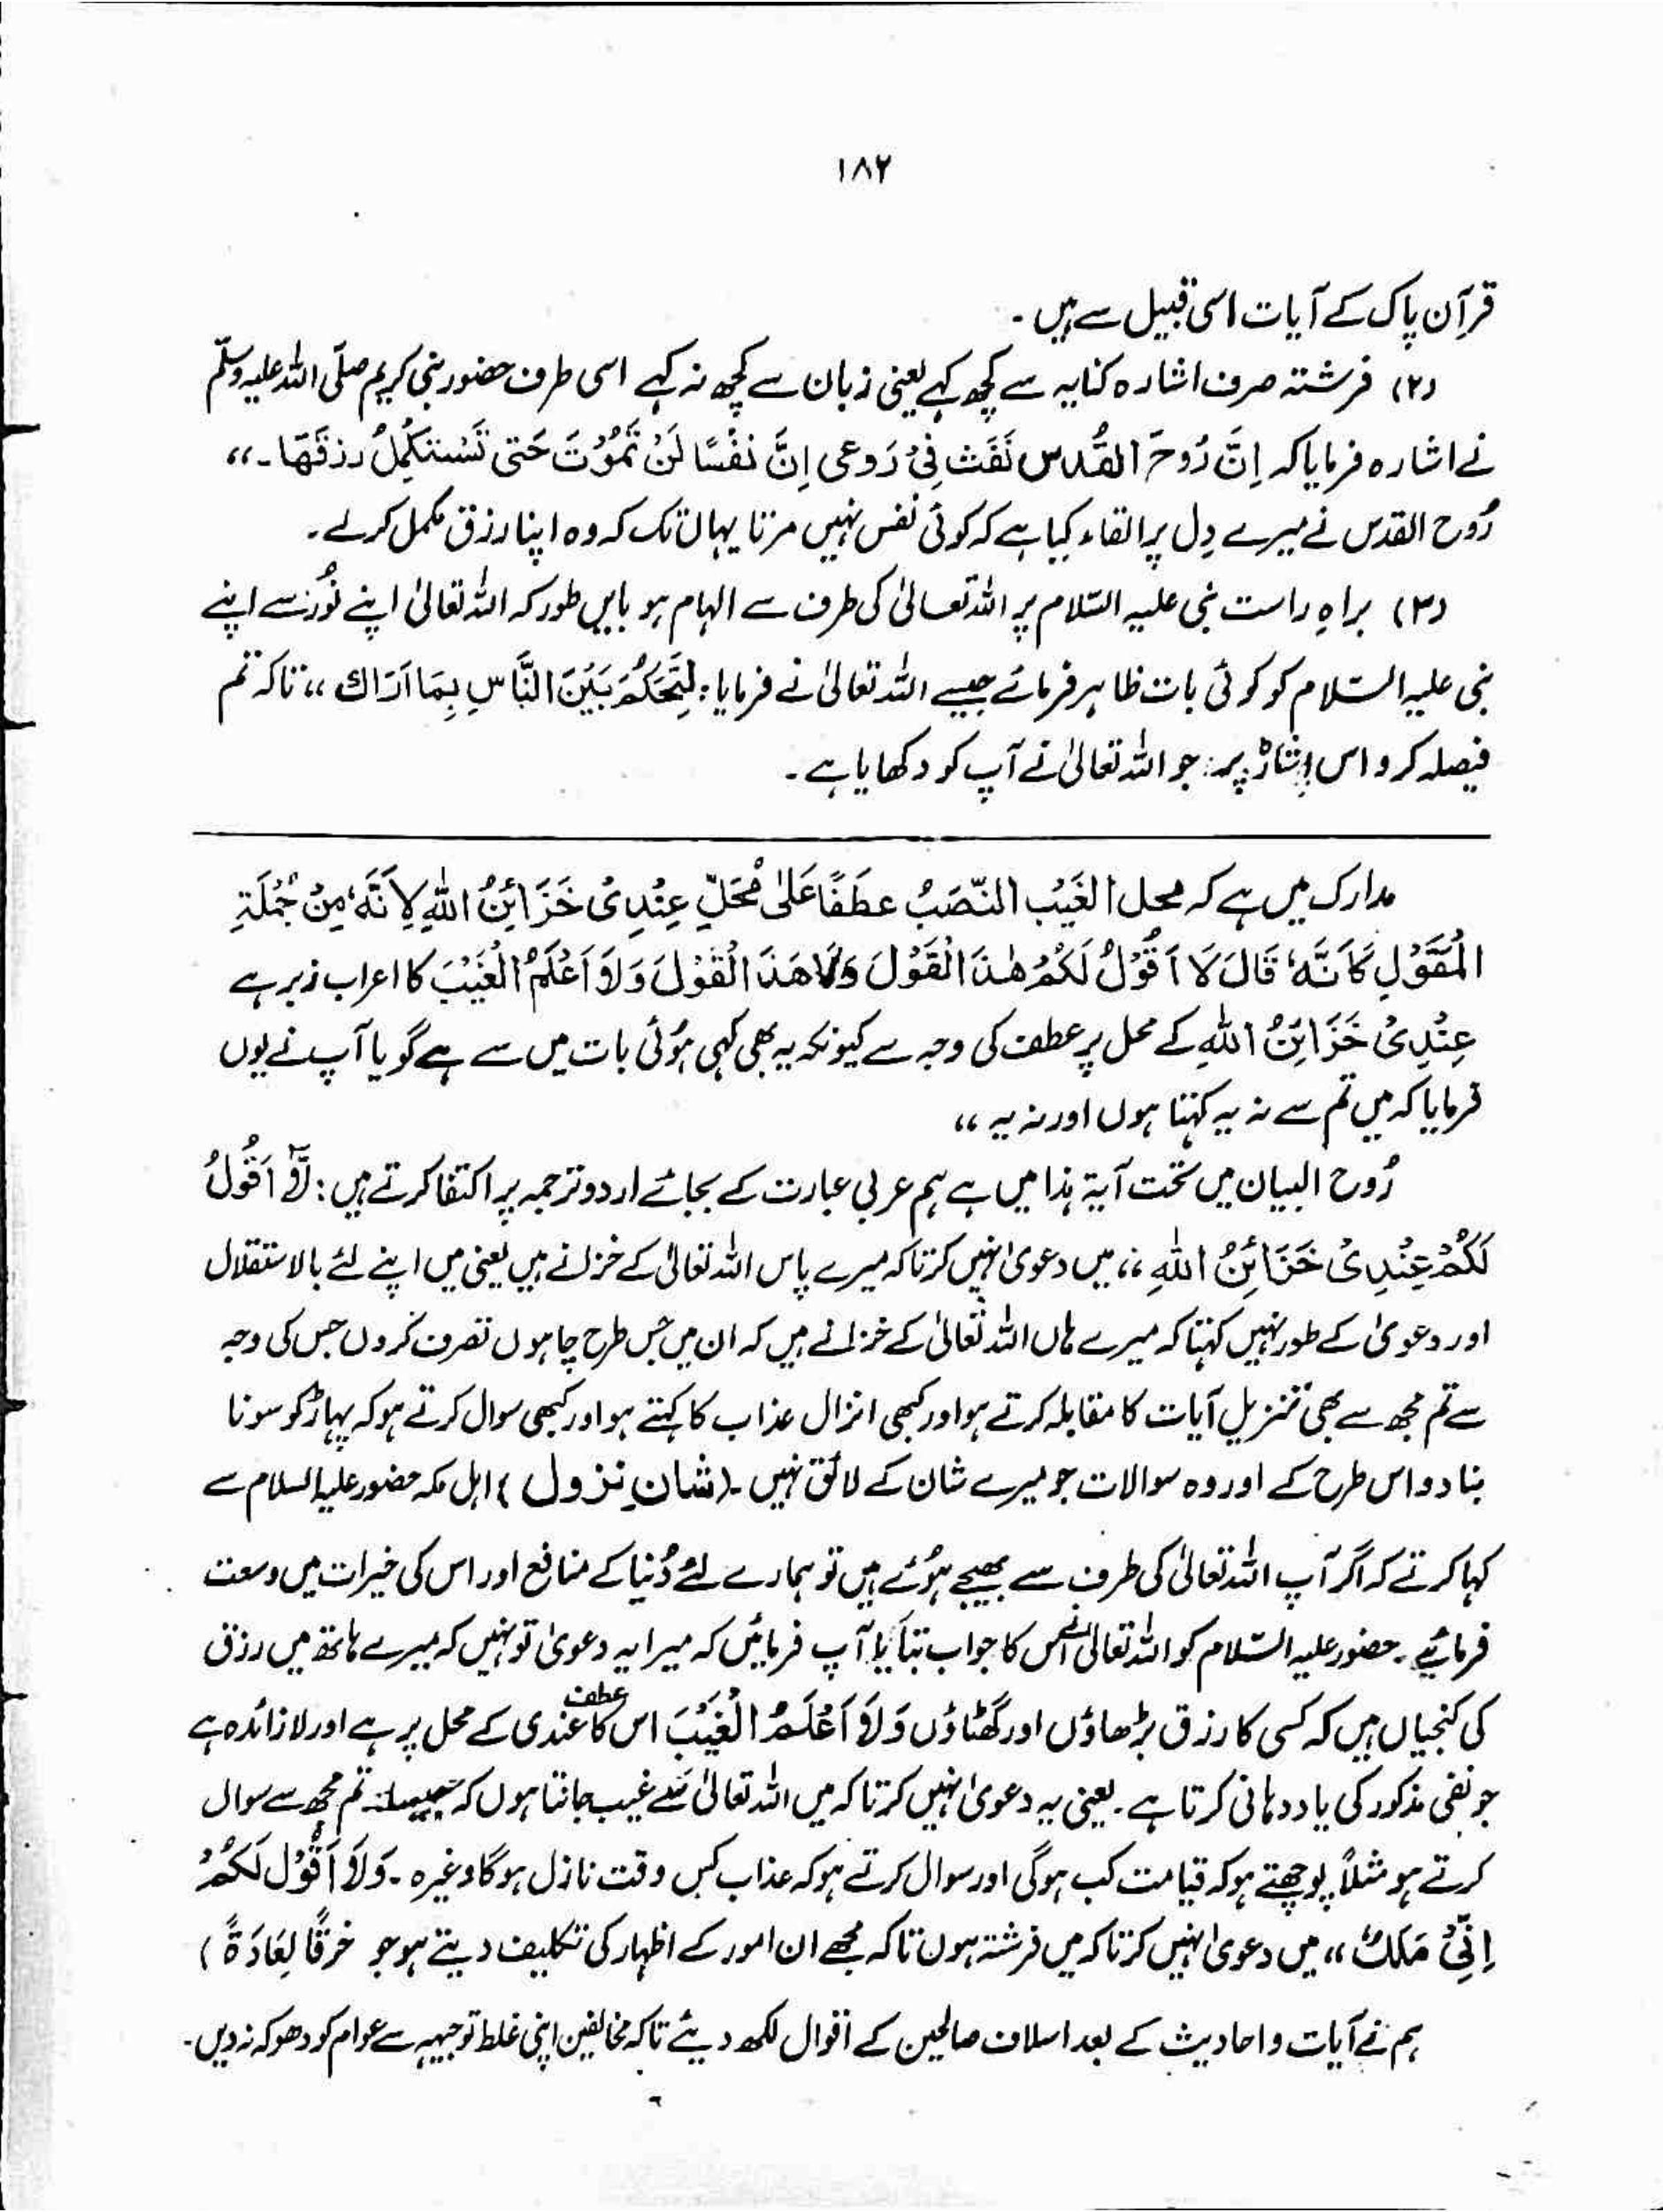 ۱۸۲
قرآن پاک کے آیات اسی قبیل سے ہیں ۔
(۲) فرشتہ صرف اشارہ کنایہ سے کچھ کہے یعنی زبان سے کچھ نہ کہے اسی طرف حضور نبی کریم صلّی اللہ علیہ وسلّم
نے اشارہ فرمایا کہ اِنَّ رُوْحَ الْقُدس نَفَثَ فِیْ رَوعی اِنَّ نَفْسًا لَنْ تَمُوْتَ حَتی تَسْتَکْمِلُ رزقَھَا ۔،،
رُوح القدس نے میرے دِل پر القاء کیا ہے کہ کوئی نفس نہیں مرتا یہاں تک کہ وہ اپنا رزق مکمل کرلے ۔
(۳) براہِ راست نبی علیہ السّلام پر اللہ تعالیٰ کی طرف سے الہام ہو بایں طور کہ اللہ تعالیٰ اپنے نُور سے اپنے
نبی علیہ السّلام کو کوئی بات ظاہر فرمائے جیسے اللہ تعالیٰ نے فرمایا : لِتَحْکُمَ بَیْنَ النَّاسِ بِمَا اَرَاكَ ،، تاکہ تم
فیصلہ کرو اس پر جو اللہ تعالیٰ نے آپ کو دکھایا ہے ۔
مدارک میں ہے کہ محل الْغَیْب النّصَبُ عطَفًا عَلیٰ مُحَلِّ عِنْدِیْ خَزَائِنُ اللهِ لِاَنَّهٗ مِنْ جُمْلَةِ
الْمَقُوْلِ کَاَنَّهٗ قَالَ لَا اَقُوْلُ لَکُمْ ھٰذَا الْقَوْلَ وَلَا ھَذَا الْقَوْلَ وَلَا اَعْلَمُ الْغَیْبَ کا اعراب زبر ہے
عِنْدِیْ خَزَائِنُ اللهِ کے محل پر عطف کی وجہ سے کیونکہ یہ بھی کہی ہوئی بات میں سے ہے گویا آپ نے یوں
فرمایا کہ میں تم سے نہ یہ کہتا ہوں اور نہ یہ ،،
رُوح البیان میں تحت آیۃ ہذا میں ہے ہم عربی عبارت کے بجائے اردو ترجمہ پر اکتفا کرتے ہیں : لَآ اَقُوْلُ
لَکُمْ عِنْدِیْ خَزَائِنُ اللهِ ،، میں دعویٰ نہیں کرتا کہ میرے پاس اللہ تعالیٰ کے خزانے ہیں یعنی میں اپنے لئے بالاستقلال
اور دعویٰ کے طور نہیں کہتا کہ میرے ہاں اللہ تعالیٰ کے خزانے ہیں کہ ان میں جس طرح چاہوں تصرف کروں جس کی وجہ
سے تم مجھ سے بھی تنزیل آیات کا مقابلہ کرتے ہو اور کبھی انزال عذاب کا کہتے ہو اور کبھی سوال کرتے ہو کہ پہاڑ کو سونا
بنا دو اس طرح کے اور وہ سوالات جو میرے شان کے لائق نہیں ۔ (شانِ نزول) اہل مکہ حضور علیہ السلام سے
کہا کرتے کہ اگر آپ اللہ تعالیٰ کی طرف سے بھیجے ہُوئے ہیں تو ہمارے لئے دُنیا کے منافع اور اس کی خیرات میں وسعت
فرمائیے ۔ حضور علیہ السّلام کو اللہ تعالیٰ نے اس کا جواب بتایا آپ فرمائیں کہ میرا یہ دعویٰ تو نہیں کہ میرے ہاتھ میں رزق
کی کنجیاں ہیں کہ کسی کا رزق بڑھاؤں اور گھٹاؤں وَلَآ اَعْلَمُ الْغَیْبَ اس کا عطف عندی کے محل پر ہے اور لا زائدہ ہے
جو نفی مذکور کی یاد دہانی کرتا ہے ۔ یعنی یہ دعویٰ نہیں کرتا کہ میں اللہ تعالیٰ سے غیب جانتا ہوں کہ تم مجھ سے سوال
کرتے ہو مثلاً پوچھتے ہو کہ قیامت کب ہوگی اور سوال کرتے ہو کہ عذاب کس وقت نازل ہوگا وغیرہ ۔ وَلَآ اَقُوْل لَکُمْ
اِنِّیْ مَلَكٌ ،، میں دعویٰ نہیں کرتا کہ میں فرشتہ ہوں تاکہ مجھے ان امور کے اظہار کی تکلیف دیتے ہو جو خرقًا لِعَادَةً )
ہم نے آیات و احادیث کے بعد اسلاف صالحین کے اقوال لکھ دیئے تاکہ مخالفین اپنی غلط توجیہہ سے عوام کو دھوکہ نہ دیں ۔